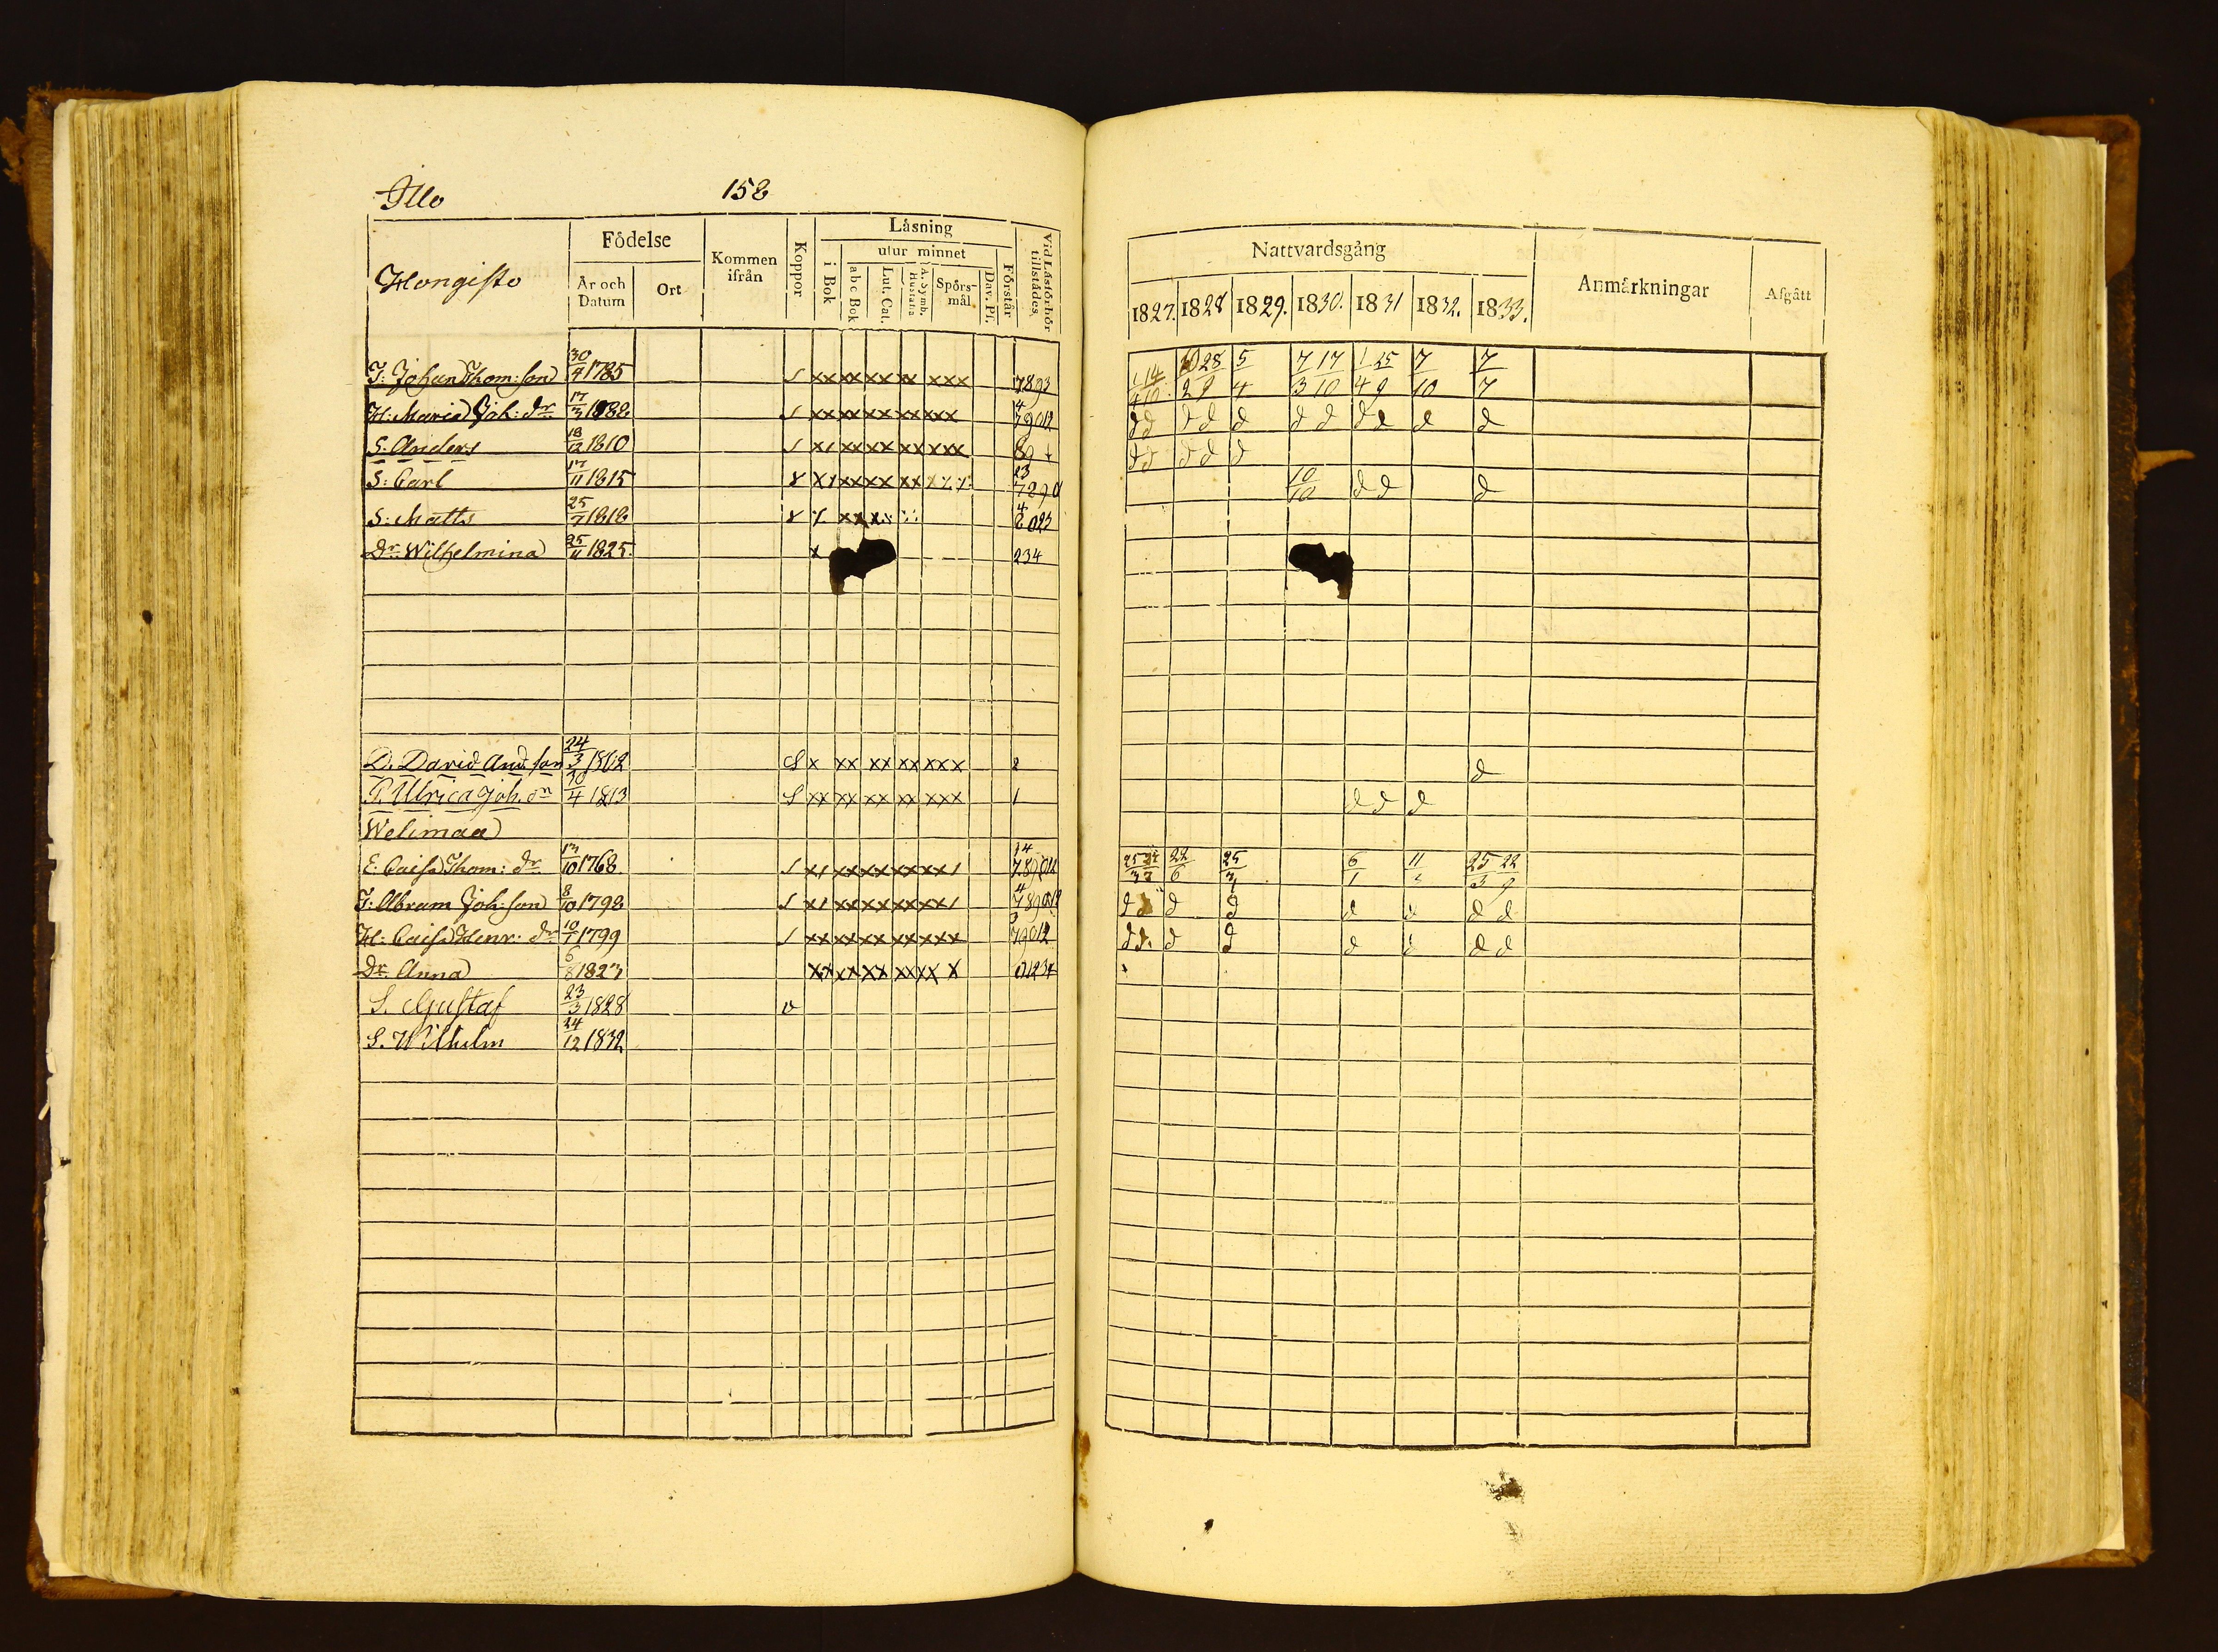 Illo 158
Hongisto
Födelse
År och Datum
Ort
Kommen ifrån
Koppor
Läsning
i Bok
utur minnet
abc Bok
Lut. Cat.
A. Symb. Hustafla
Spörsmål
Dav. Ps.
Förstår
Vid Läsförhör tillstädes
J: Johan Thom: son 30/4 1785 xx xx xx xx xxx 7893
H: Maria Joh: dr 17/3 1788 xx xx xx xx xxx 4 79012
S: Anders 18/12 1810 xx xx xx xxx 89
S: Carl 17/11 1815 xx xx xx 23 7890
S: Matts 25/7 1818 xx 4 8023
Dr Wilhelmina 25/11 1825. x 234
D. David And. son 24/3 1802 S x xx xx xx xxx 2
P. Ulrica Joh. dr 30/4 1813 S xx xx xx xx xxx 1
Welimaa
E: Caisa Thom: dr 17/10 1768 34
J: Abram Joh: son 8/10 1798 4
H: Caisa Henr: dr 10/7 1799 xx xx xx xx xxx 3 79012
Dr Anna 6/8 1827 xx xx xx xx x x 01234
S. Gustaf 23/3 1828 v
S. Wilhelm 24/12 1832
Nattvardsgång
1827. 1828 1829. 1830. 1831 1832. 1833.
Anmärkningar
Afgått
28/9 5/4 7/3 17/10 1/4 25/9 7/10 7/7
d d d d d d d d d d d
d d d d d
10/10 d d d
d
d d d
22/6 25/3 6/1 25/3 22/9
d d d d d d d d
d d. d d d d d d